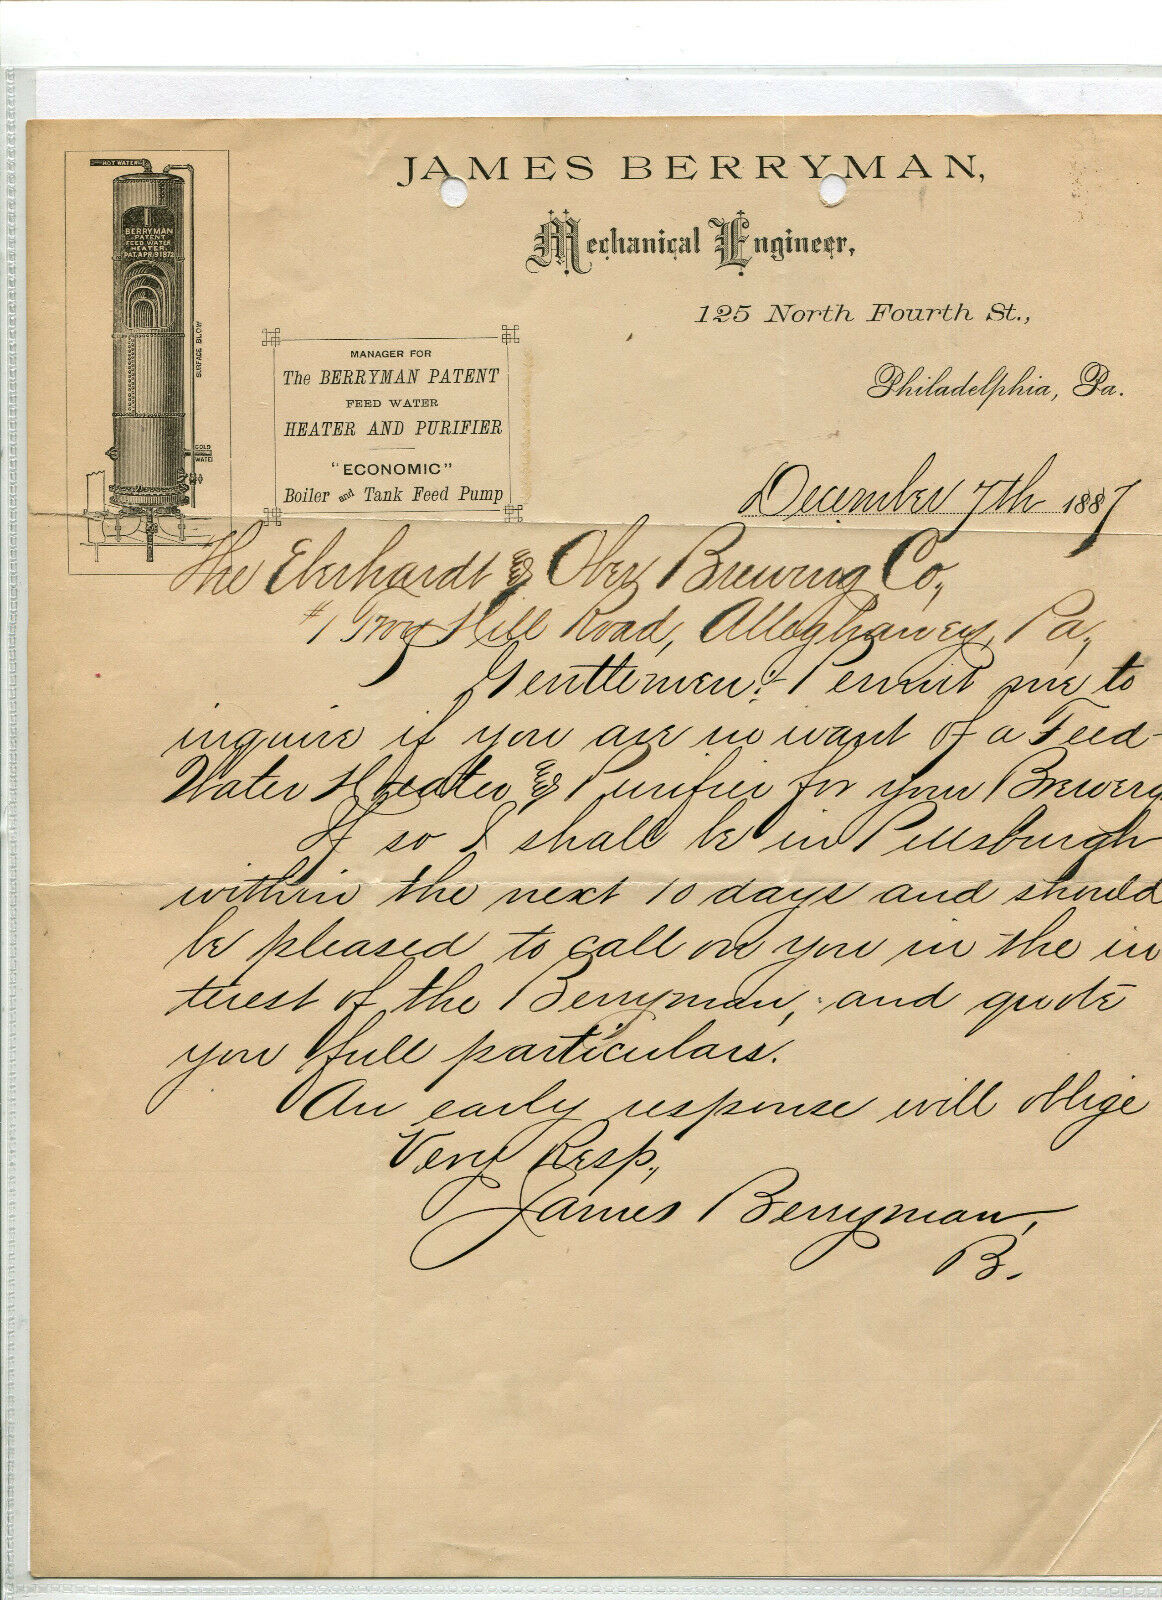 HOT WATER
BERRYMAN
PATENT
FEED WATER
HEATER.
PAT. APR. 9 1872
SURFACE BLOW
COLD
WATER
JAMES BERRYMAN,
Mechanical Engineer,
125 North Fourth St.,
Philadelphia, Pa.
MANAGER FOR
The BERRYMAN PATENT
FEED WATER
HEATER AND PURIFIER
"ECONOMIC"
Boiler and Tank Feed Pump
December 7th 1887
The Eberhardt & Ober Brewing Co,
#1 Troy Hill Road, Alleghaney, Pa,
Gentlemen:- Permit me to
inquire if you are in want of a Feed-
Water Heater & Purifier for your Brewery
If so I shall be in Pittsburgh
within the next 10 days and should
be pleased to call on you in the in
terest of the Berryman, and quote
you full particulars.
An early response will oblige
Very Resp,
James Berryman,
B.